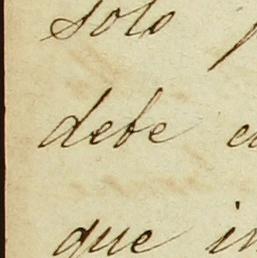 solo
debe
que